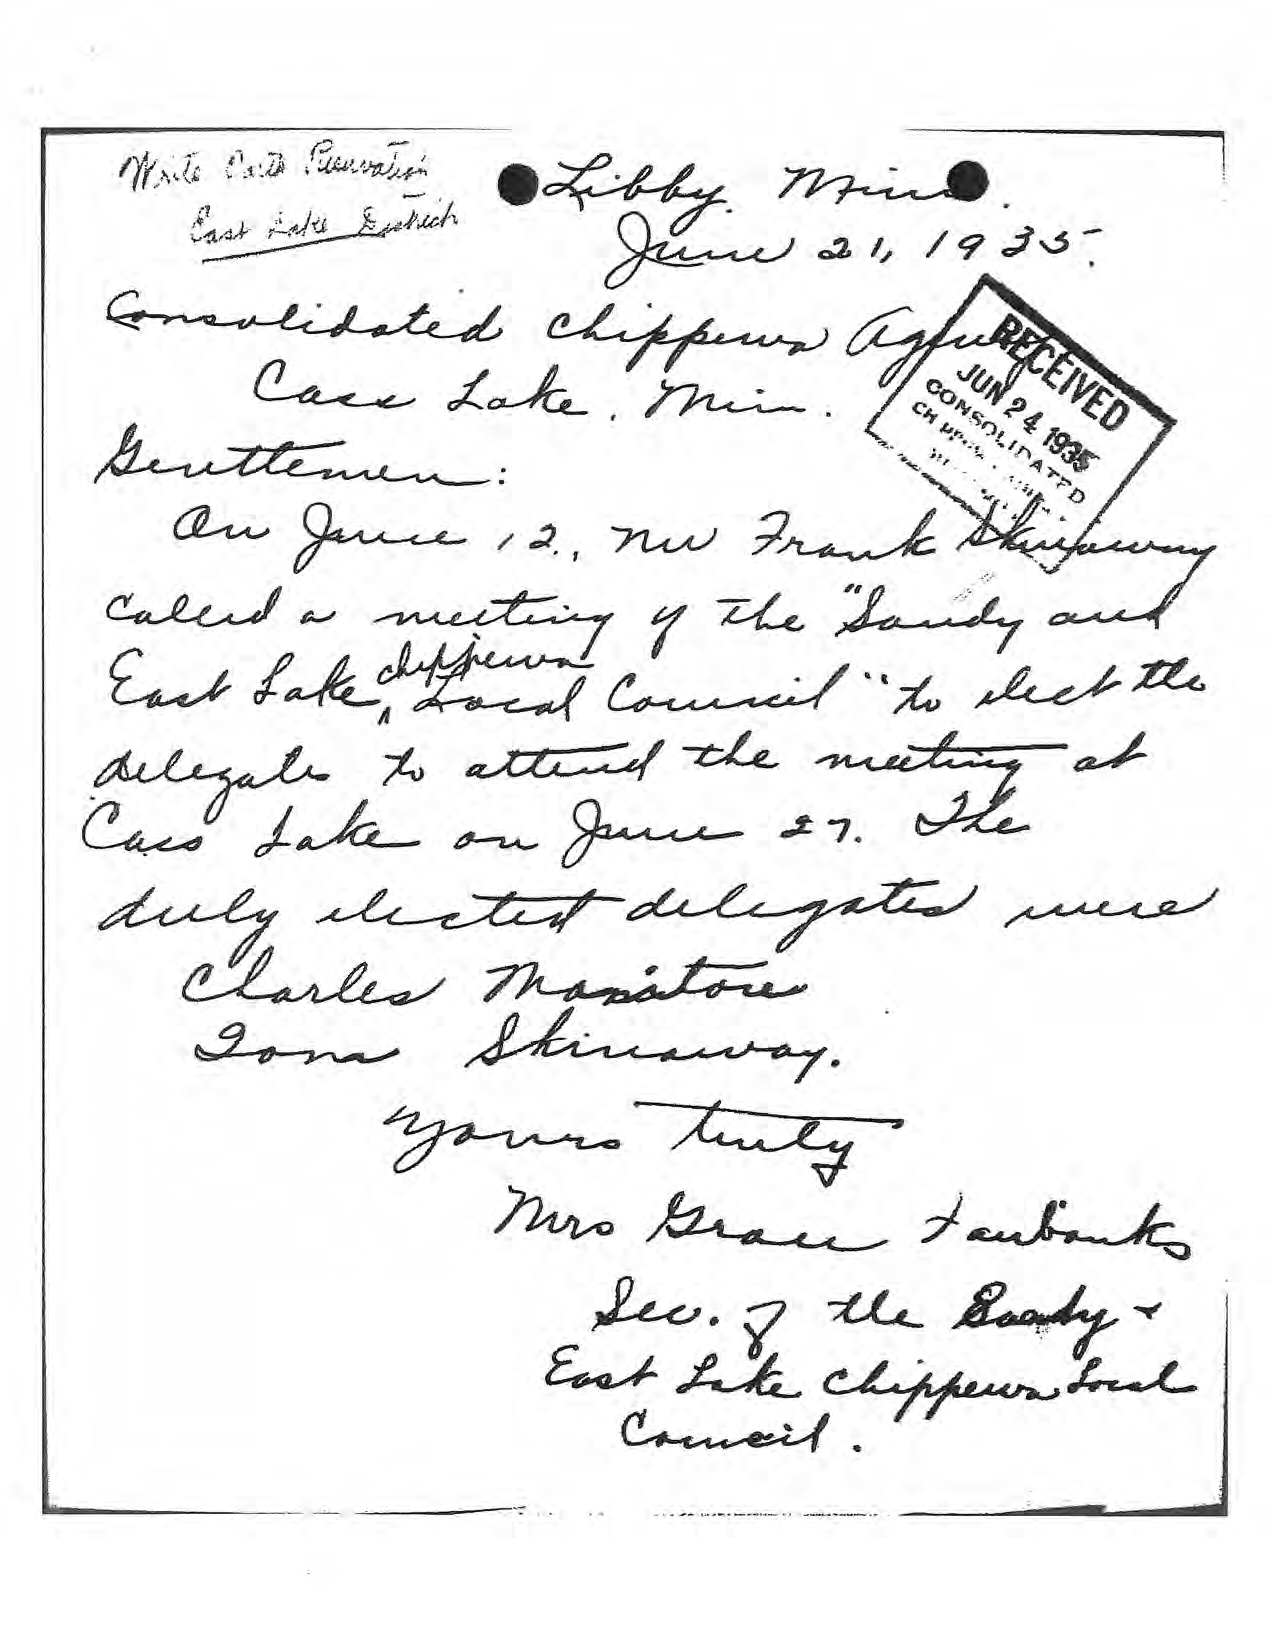 White Earth Reservation
East Lake District
Libby, Minn.
June 21, 1935.
Consolidated Chippewa Agency
Cass Lake, Minn.
RECEIVED
JUN 24 1935
CONSOLIDATED
Gentlemen:
On June 12, Mr Frank Skinaway
called a meeting of the "Sandy and
East Lake chippewa Local Council" to elect the
delegates to attend the meeting at
Cass Lake on June 27. The
duly elected delegates were
Charles Manitou
Tom Skinaway.
Yours truly
Mrs Grace Fairbanks
Sec. of the Sandy &
East Lake Chippewa Local
Council.